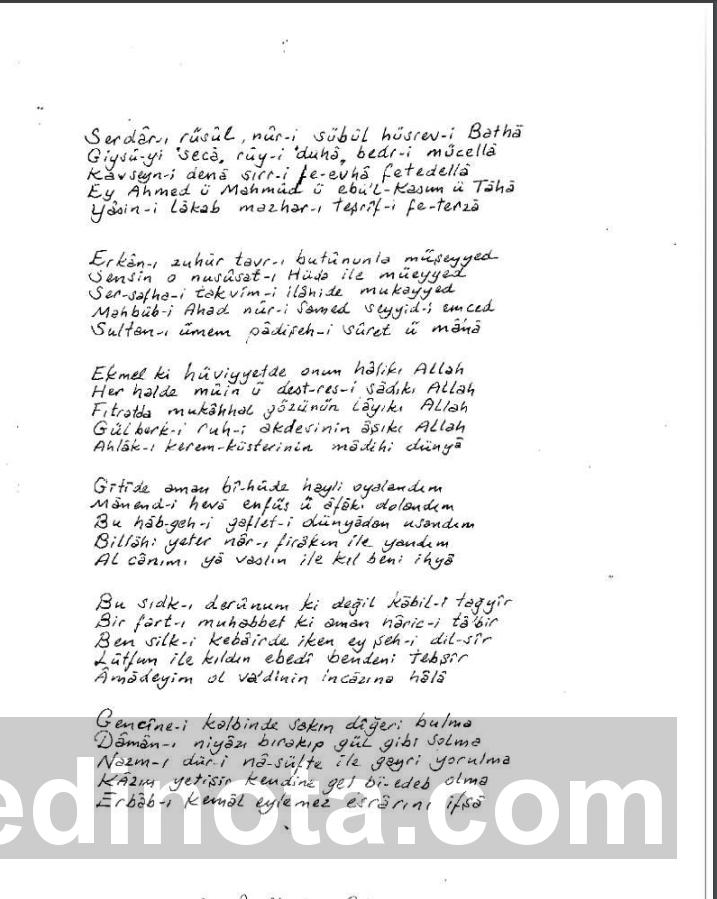 Serdâr-ı rüsûl, nûr-i sübül hüsrev-i Bathâ
Giysû-yi secâ, rûy-i duhâ, bedr-i mücellâ
Kavseyn-i denâ sırr-ı fe-evhâ fetedellâ
Ey Ahmed ü Mahmûd ü ebü'l-Kasım ü Tâhâ
Yâsin-i lâkab mazhar-ı teşrîf-i fe-terzâ
Erkân-ı zuhûr tavr-ı butûnunla müşeyyed
Sensin o nusûsat-ı Hüda ile müeyyed
Ser-safha-i takvîm-i ilâhide mukayyed
Mahbûb-i Ahad nûr-i Samed seyyid-i emced
Sultan-ı ümem pâdişeh-i sûret ü mânâ
Ekmel ki hüviyyetde onun hâlikı Allah
Her halde müin ü dest-res-i sâdıkı Allah
Fıtratda mukâhhal gözünün lâyıkı Allah
Gül berk-i ruh-i akdesinin âşıkı Allah
Ahlâk-ı kerem-küsterinin mâdihi dünyâ
Gîtîde aman bî-hûde hayli oyalandım
Mânend-i hevâ enfüs ü âfâkı dolandım
Bu hâb-geh-i gaflet-i dünyâdan usandım
Billâhi yeter nâr-ı firâkın ile yandım
Al cânımı yâ vaslın ile kıl beni ihyâ
Bu sıdk-ı derûnum ki değil kâbil-i tağyîr
Bir fart-ı muhabbet ki aman hâric-i tâ'bir
Ben silk-i kebâirde iken ey şeh-i dil-sîr
Lütfun ile kıldın ebedî bendeni tebşîr
Âmâdeyim ol va'dinin incâzına hâlâ
Gencîne-i kalbinde sakın dîğeri bulma
Dâmân-ı niyâzı bırakıp gül gibi solma
Nazm-ı dür-i nâ-süfte ile gayri yorulma
Kâzım yetişir kendine gel bî-edeb olma
Erbâb-ı kemâl eylemez esrârını ifşâ
edinota.com